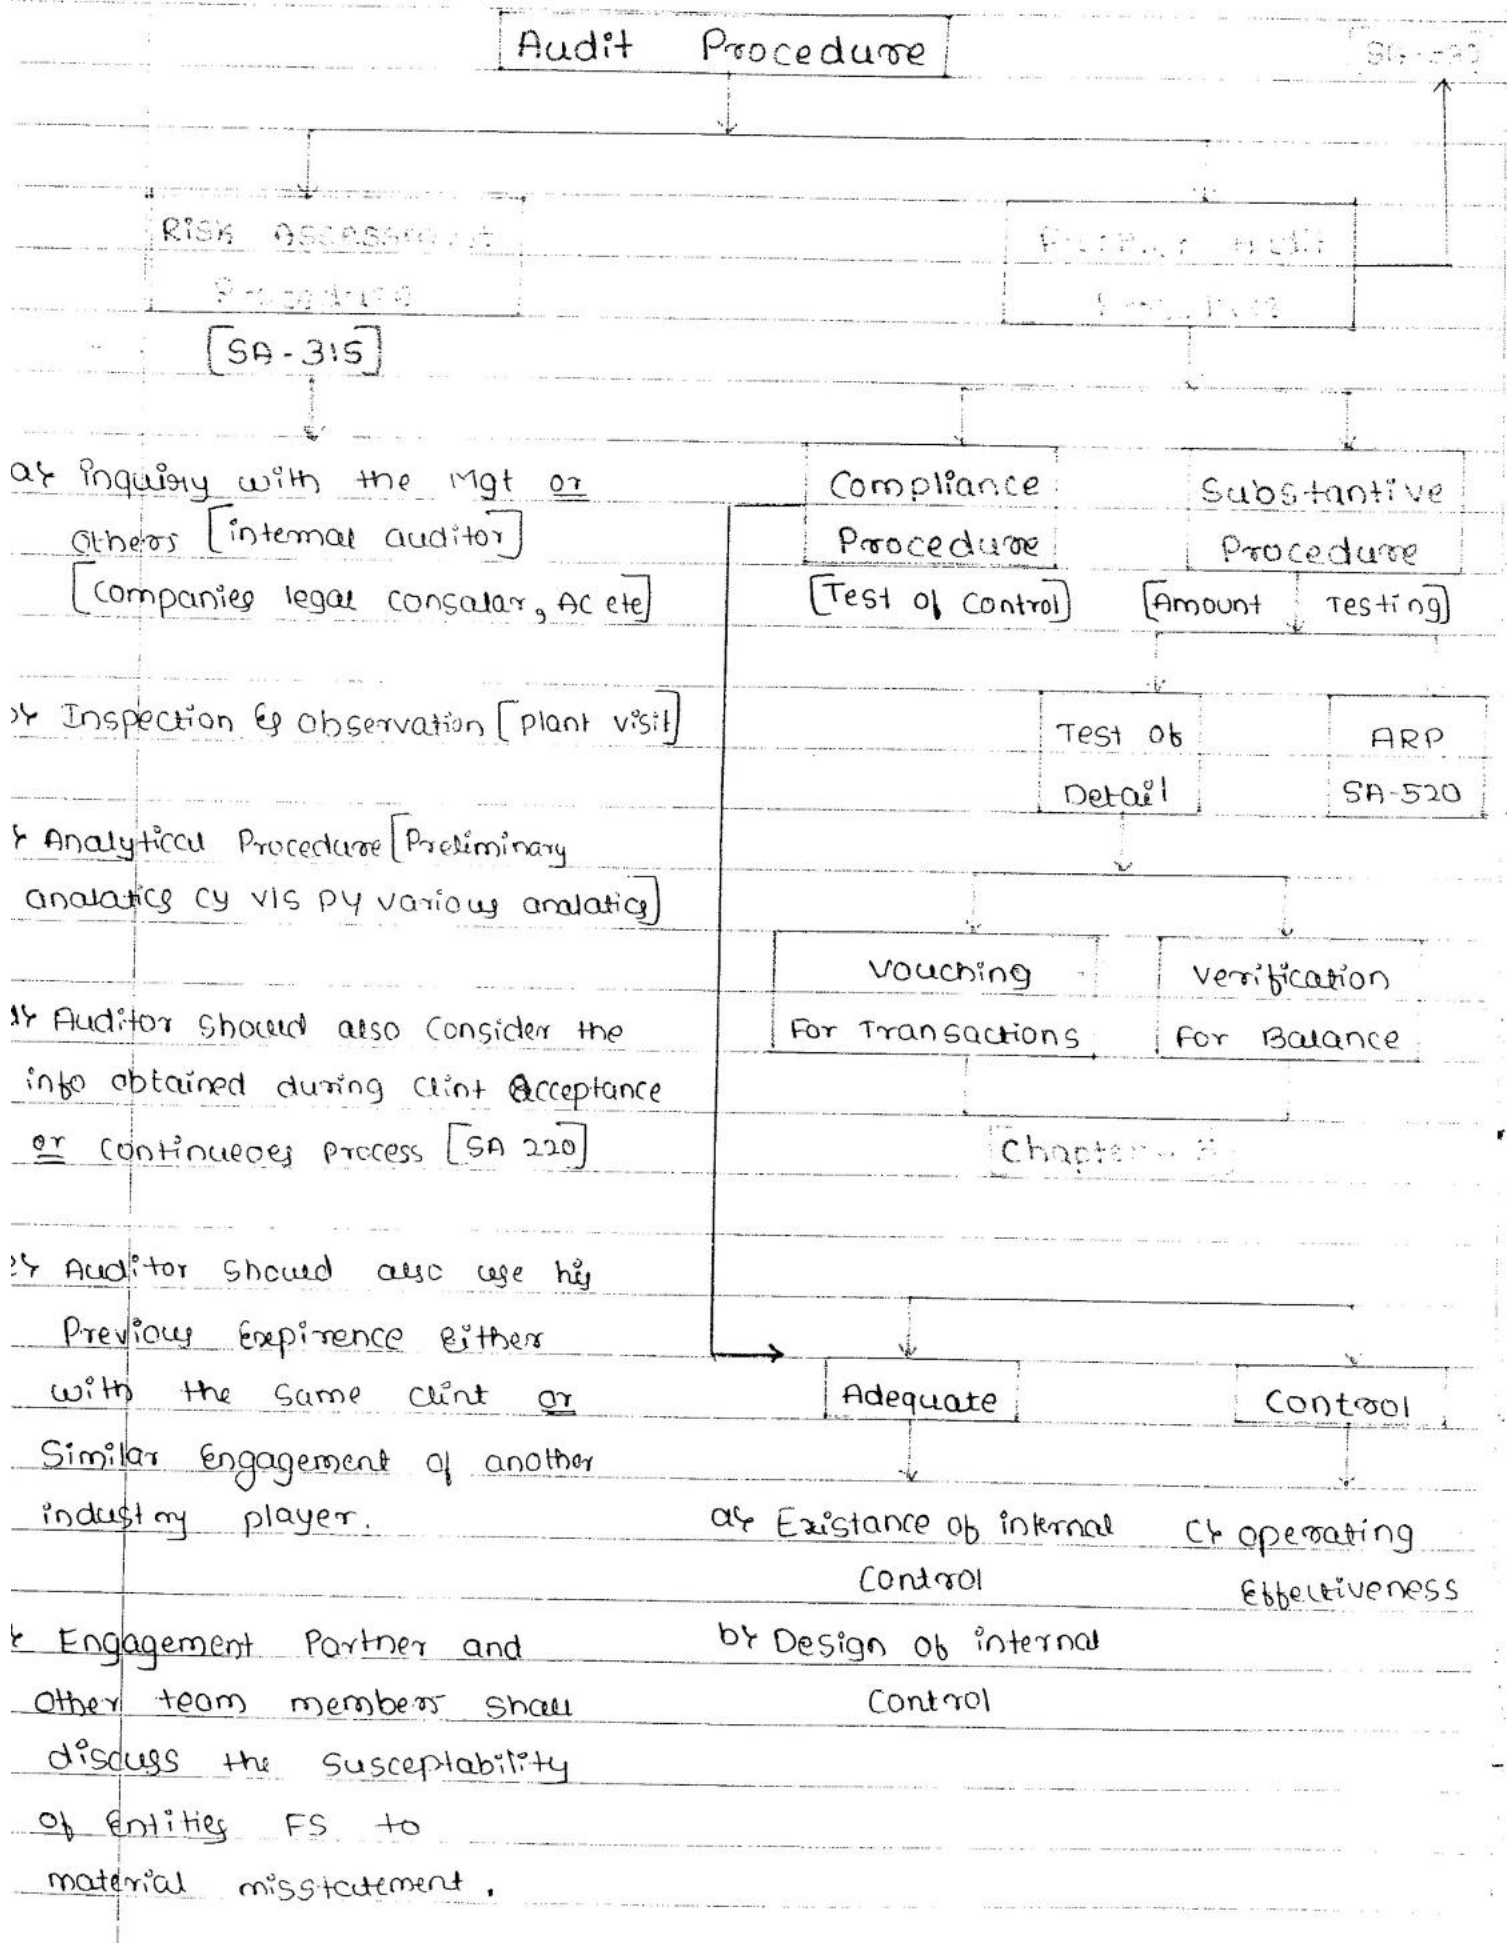 Audit Procedure
Risk Assessment
Procedure
[SA-315]
a) inquiry with the Mgt or
others [internal auditor]
[Companies legal consalar, AC etc]
b) Inspection & observation [plant visit]
Analytical Procedure [Preliminary
analatics cy vis py various analatics]
d) Auditor should also consider the
info obtained during clint Acceptance
or continueoes process [SA 220]
e) Auditor should also use his
Previous Expirence Either
with the same clint or
Similar Engagement of another
industry player.
Engagement Partner and
other team members shall
discuss the susceptability
of Entities FS to
material misstatement.
Audit
Compliance
Procedure
[Test of Control]
Substantive
Procedure
[Amount Testing]
Test of
Detail
ARP
SA-520
Vouching
For Transactions
Verification
For Balance
Chapter
Adequate
Control
a) Existance of internal
Control
b) Design of internal
Control
c) operating
Effectiveness